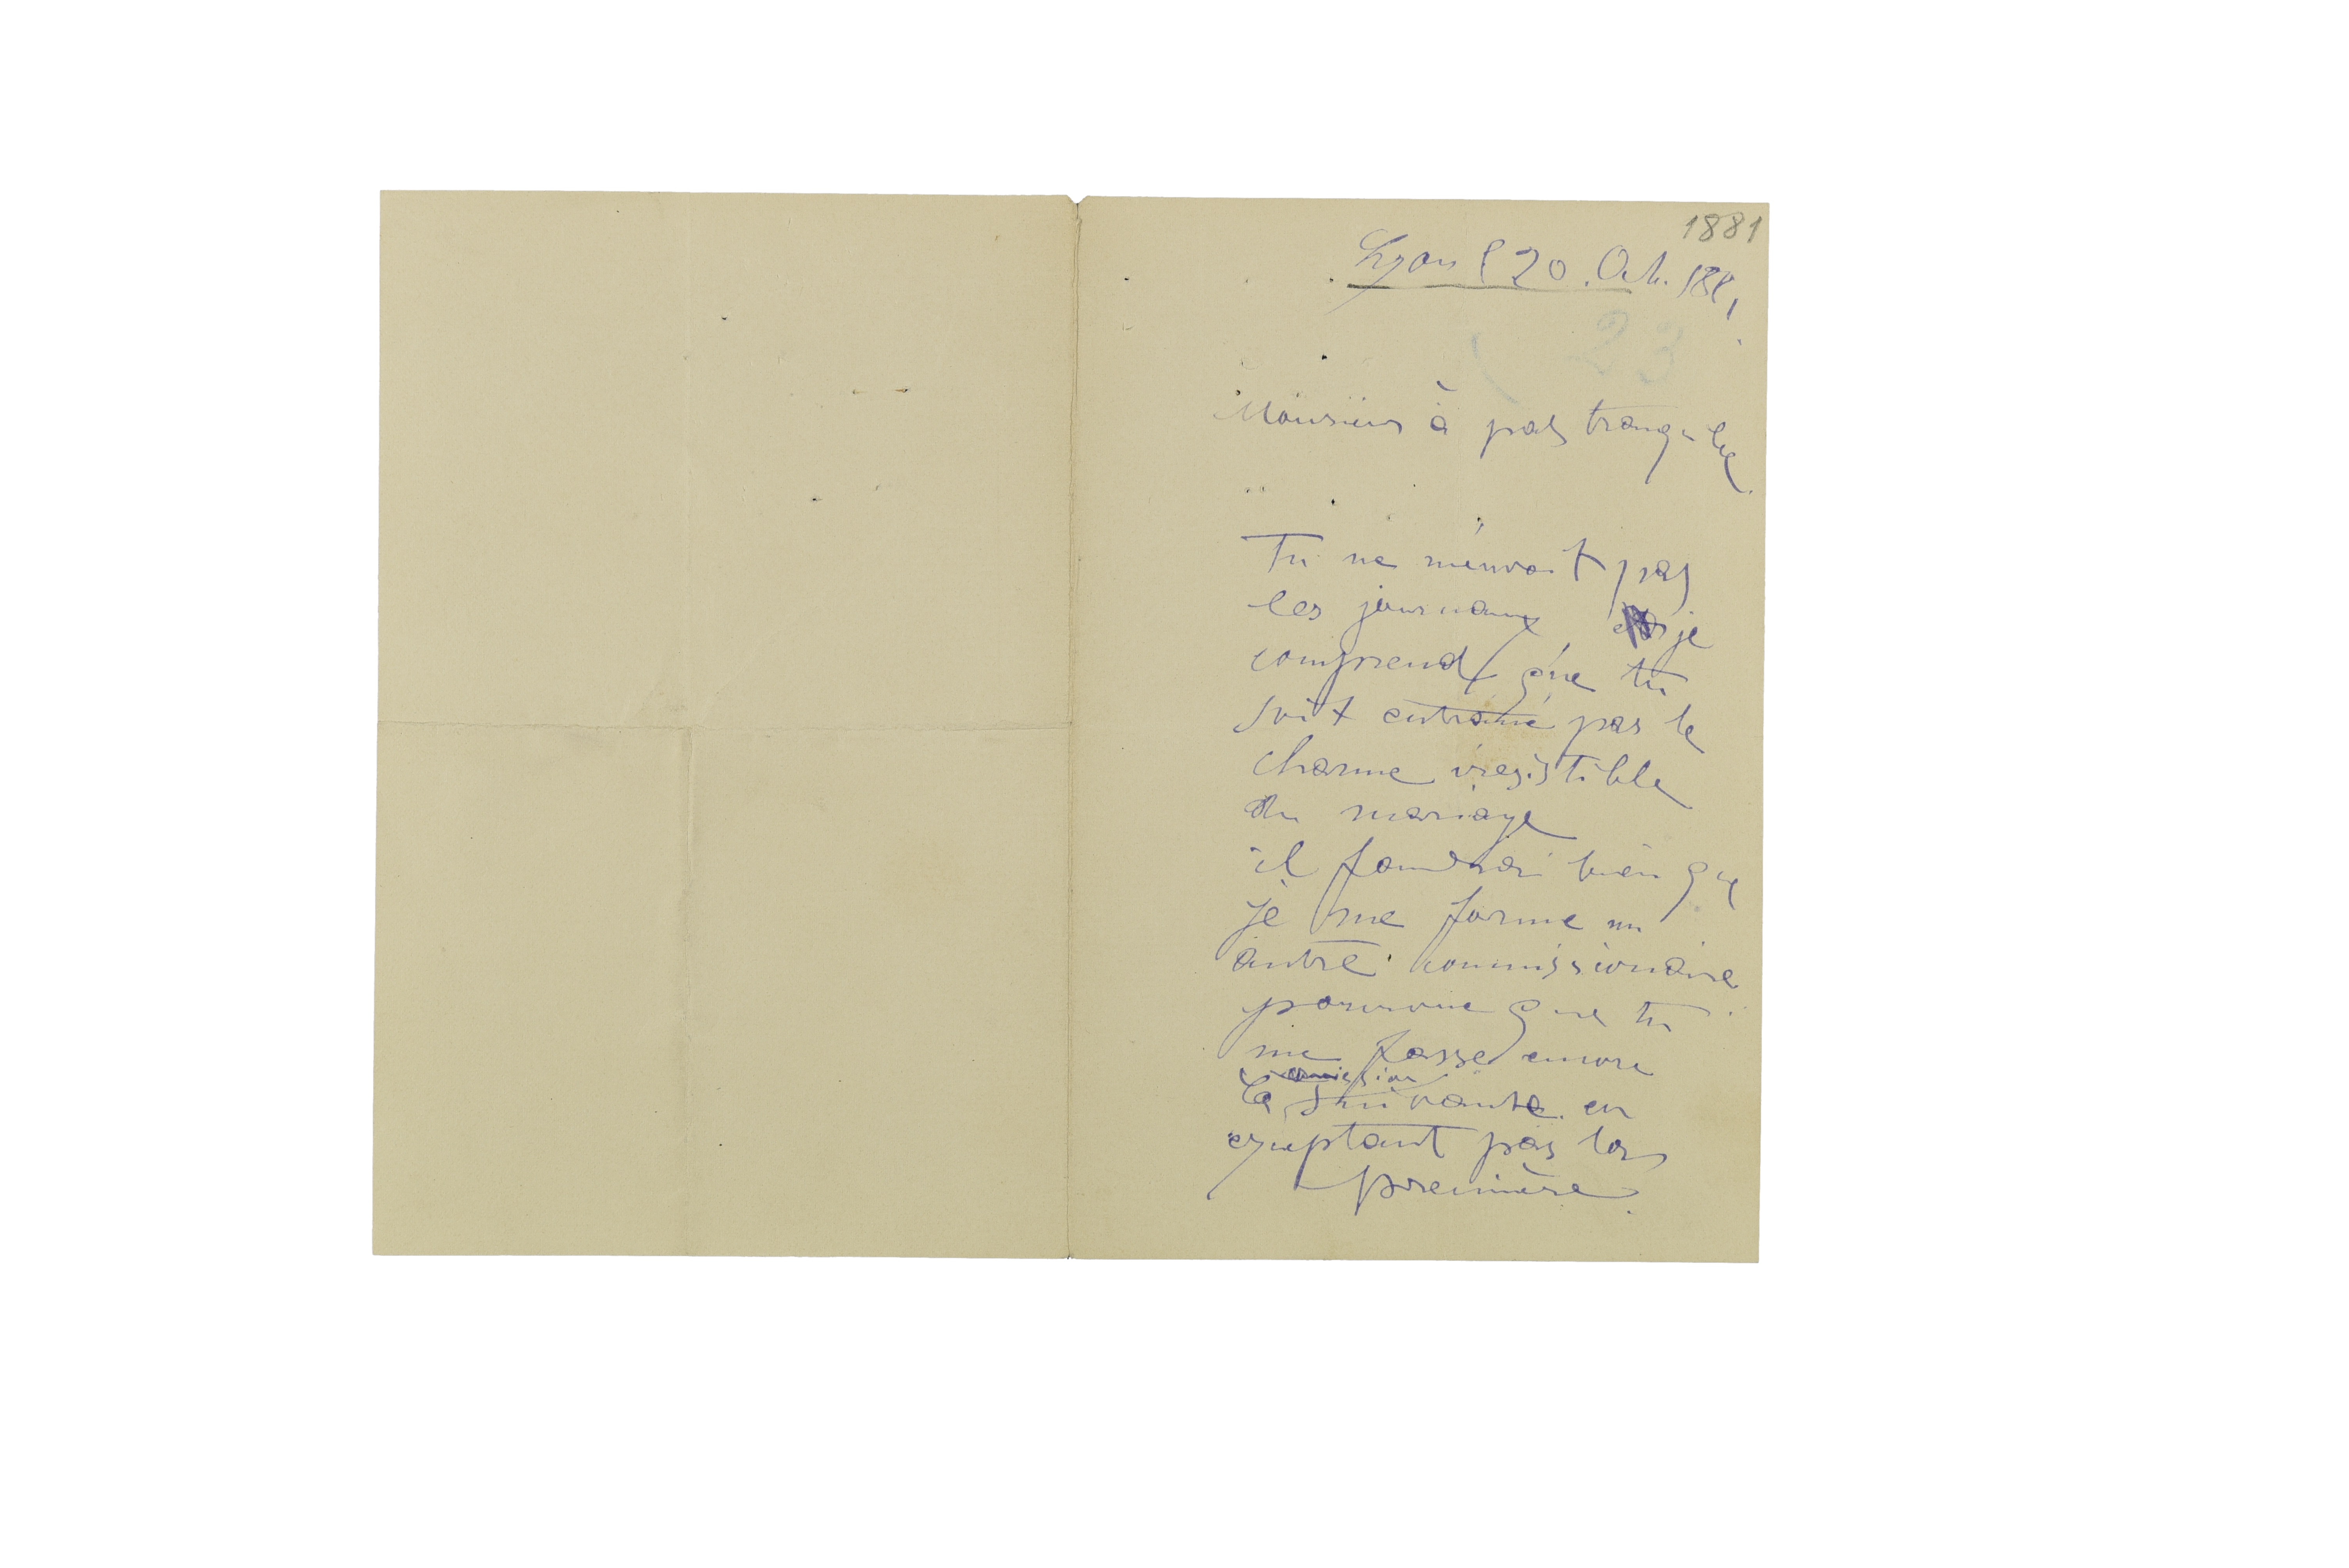 1881
Lyon l 20. Oct. 1881
23
Monsieur à pas tranquile
Tu ne m'envoit pas
les journaux je
comprend que tu
soit entrainé par le
charme iresistible
du mariage
il foudrai bien que
je me forme un
autre commissionaire
pourvue que tu
me fasse encore
comission
la suivante en
exceptant pas la
première.